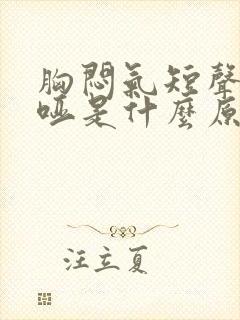 胸悶氣短聲
啞是什麼原
汪立夏